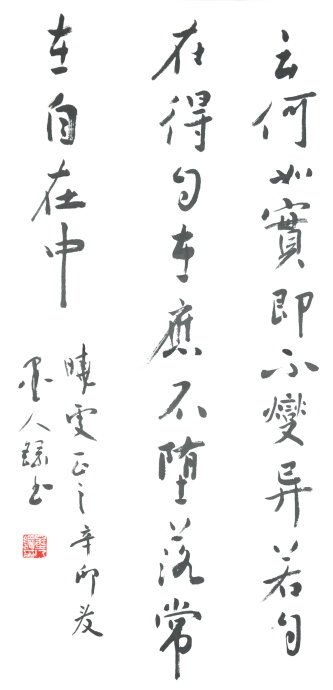 云何如實即不變異若自
在得自在應不墮落常
在自在中
曉雯正之辛卯夏
人錄書